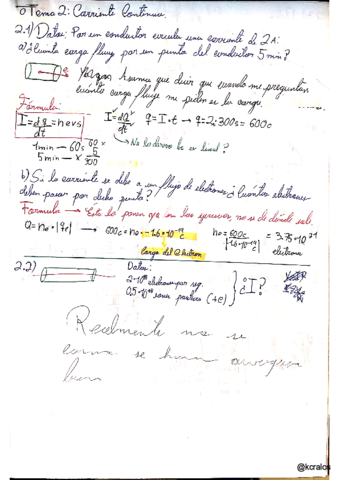 Tema 2: Corriente Continua.
2.1) Datos: Por un conductor circula una corriente de 2A:
a) ¿Cuánta carga fluye por un punto del conductor 5 min?
que decir que cuando me preguntan
cuánta carga fluye me piden es la carga.
Fórmula:
I = dq/dt = nevs
I = dq/dt q = I·t → q = 2·300s = 600c
1min — 60s
5min — x
60 x 5 300
→ No lo derivo he es lineal?
b) Si la corriente se debe a un flujo de electrones ¿Cuántos electrones
deben pasar por dicho punto?
Formula → Esto lo ponen así con las no se de dónde sale.
Q = ne · |qe| → 600c = ne · -1.6·10⁻¹⁹c ne = 600c / |-1.6·10⁻¹⁹c| = 3.75·10²¹ electrones
carga del electron
2.2)
Datos:
electrones por seg.
(+e)
¿I?
Realmente no se
como se hace
bien
@kcralos